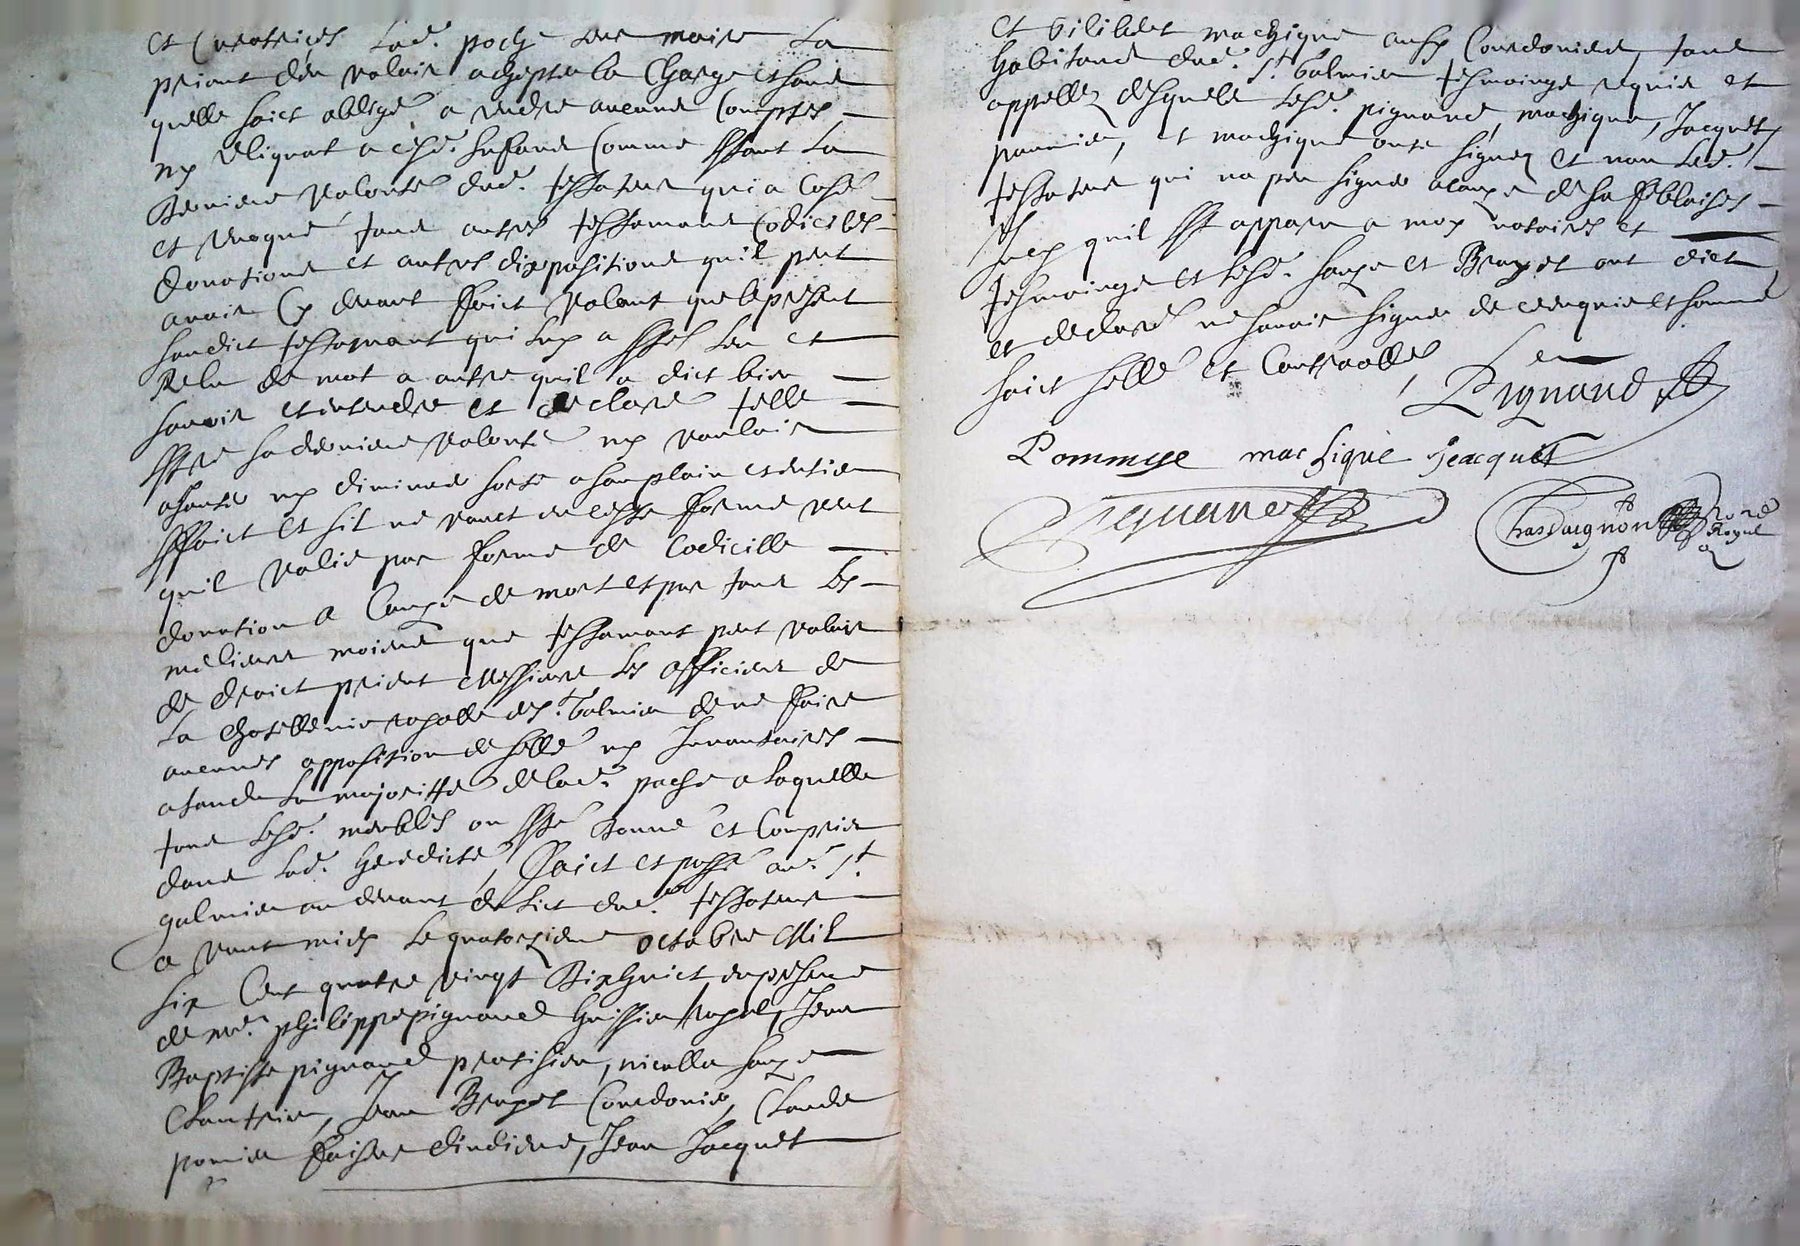 et Curatrices lad. poche leur maire la
priant den voloir achepter la Charge et sans
quelle soict obligé a rendre aucune Comptes,
ny reliquat a cesd. enfans Comme estant la
derniere volonte dud. testateur qui a Cassé
et revoqué tous autres testamans Codicilles
donations et autres dispositions quil peut
avoir Cy devant faict volant que le present
sondict testamant qui luy a esté leu et
relu de mot a autre quil a dict bien
scavoir et entendre et declaré telle
estre sa derniere volonté ny vouloir
adjouter ny diminuer sorte a son plain et entier
effaict et sil ne vaut en ceste forme veut
quil valie par forme de Codicille
donation a Cause de mort et par tous les
melieurs moiens que testamant peut valoir
de droict prient Messieurs les officiers de
la Chatellenie royalle de St. Galmier de ne faire
aucunes apposition de sellé ny Invantaires
atandu la majoritté de lad. poche a laquelle
tous lesd. meubles on esté donné et Compris
dans lad. heredicté, Faict et passé aud. St.
galmier au devant de lict dud. testateur
a vant midy le quatorzieme octobre Mil
six Cent quatre vingt dixhuict en presence
de me. philippe pignand huissier royal, Jean
Baptiste pignand praticien, nicollas sauze
Chantrier, Jean Bruyet Cordonier, Claude
pomier faiseur dindiene, Jean Jacquet
et machigue aussy Cordonier, tous
habitans dud. St. Galmier tesmoings requis et
appellez desquels lesd. pignand, machigue, Jacquet,
pomier, et machigue ont signez et non led.
testateur qui na peu signer a cause de sa feblaisse
Incy quil est apparu a moy notaires et
tesmoings et lesd. sauze et Bruyet ont dict
et declaré ne scavoir signer de ce enquis et sommé
soict sellé et Contraollé,
Pignand
Pommye machiguè Jeacquet
Pignand
Chassaignon Nore Royal